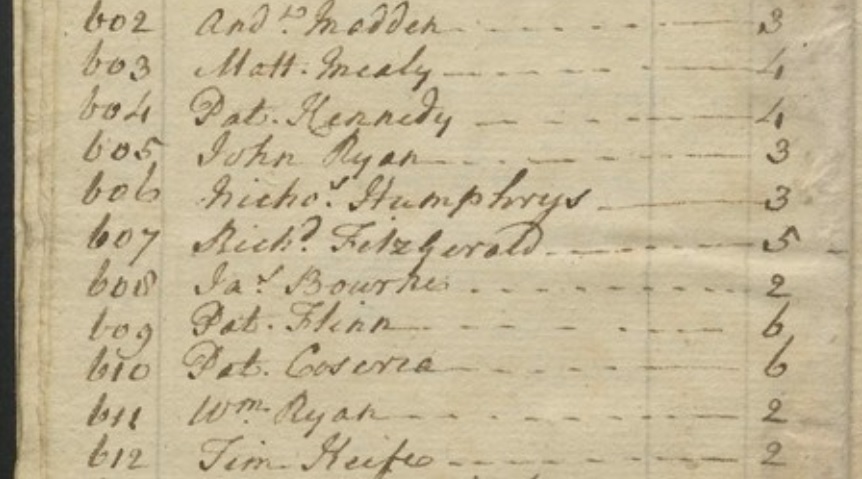 602 And.w Madden 3
603 Matt. Mealy 4
604 Pat. Kennedy 4
605 John Ryan 3
606 Nicho.s Humphrys 3
607 Rich.d Fitzgerald 5
608 Ja.s Bourke 2
609 Pat. Flinn 6
610 Pat. 6
611 Wm. Ryan 2
612 Tim Keife 2